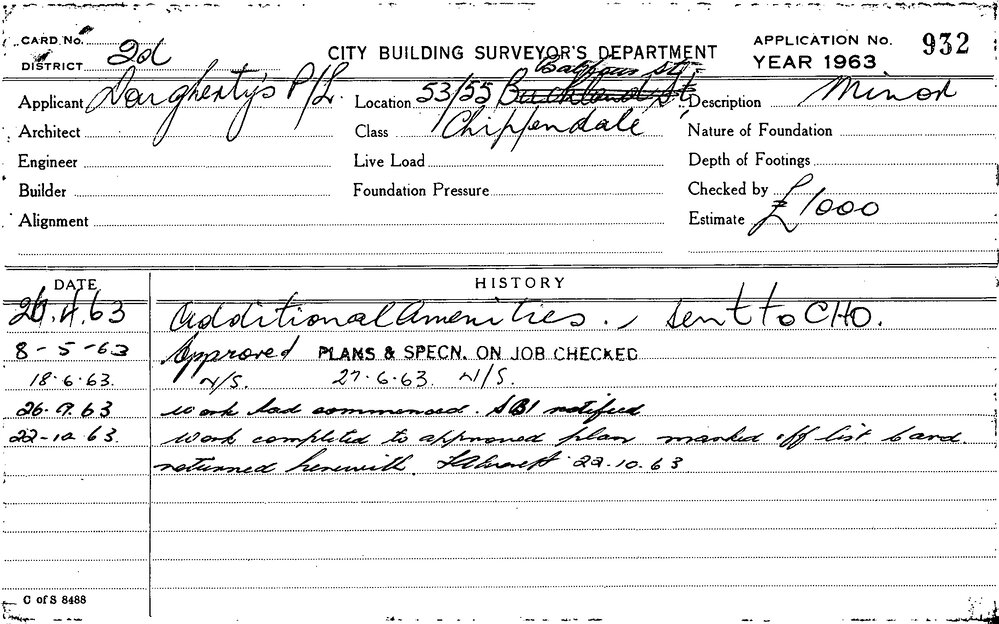 CARD No.
DISTRICT 2d
CITY BUILDING SURVEYOR'S DEPARTMENT
APPLICATION No. 932
YEAR 1963
Applicant Dougherty's P/L.
Location 53/55 Buckland St, Balfour St.
Description Minor
Architect
Class Chippendale
Nature of Foundation
Engineer
Live Load
Depth of Footings
Builder
Foundation Pressure
Checked by
Alignment
Estimate £1000
DATE
HISTORY
26.4.63 Additional Amenities. , Sent to CHO.
8-5-63 Approved PLANS & SPECN. ON JOB CHECKED
18.6.63. N/S. 27.6.63. N/S.
26.9.63 work had commenced. SBI notified
22-10 63. work completed to approved plan marked off list & card
returned herewith. 22.10.63
C of S 8488